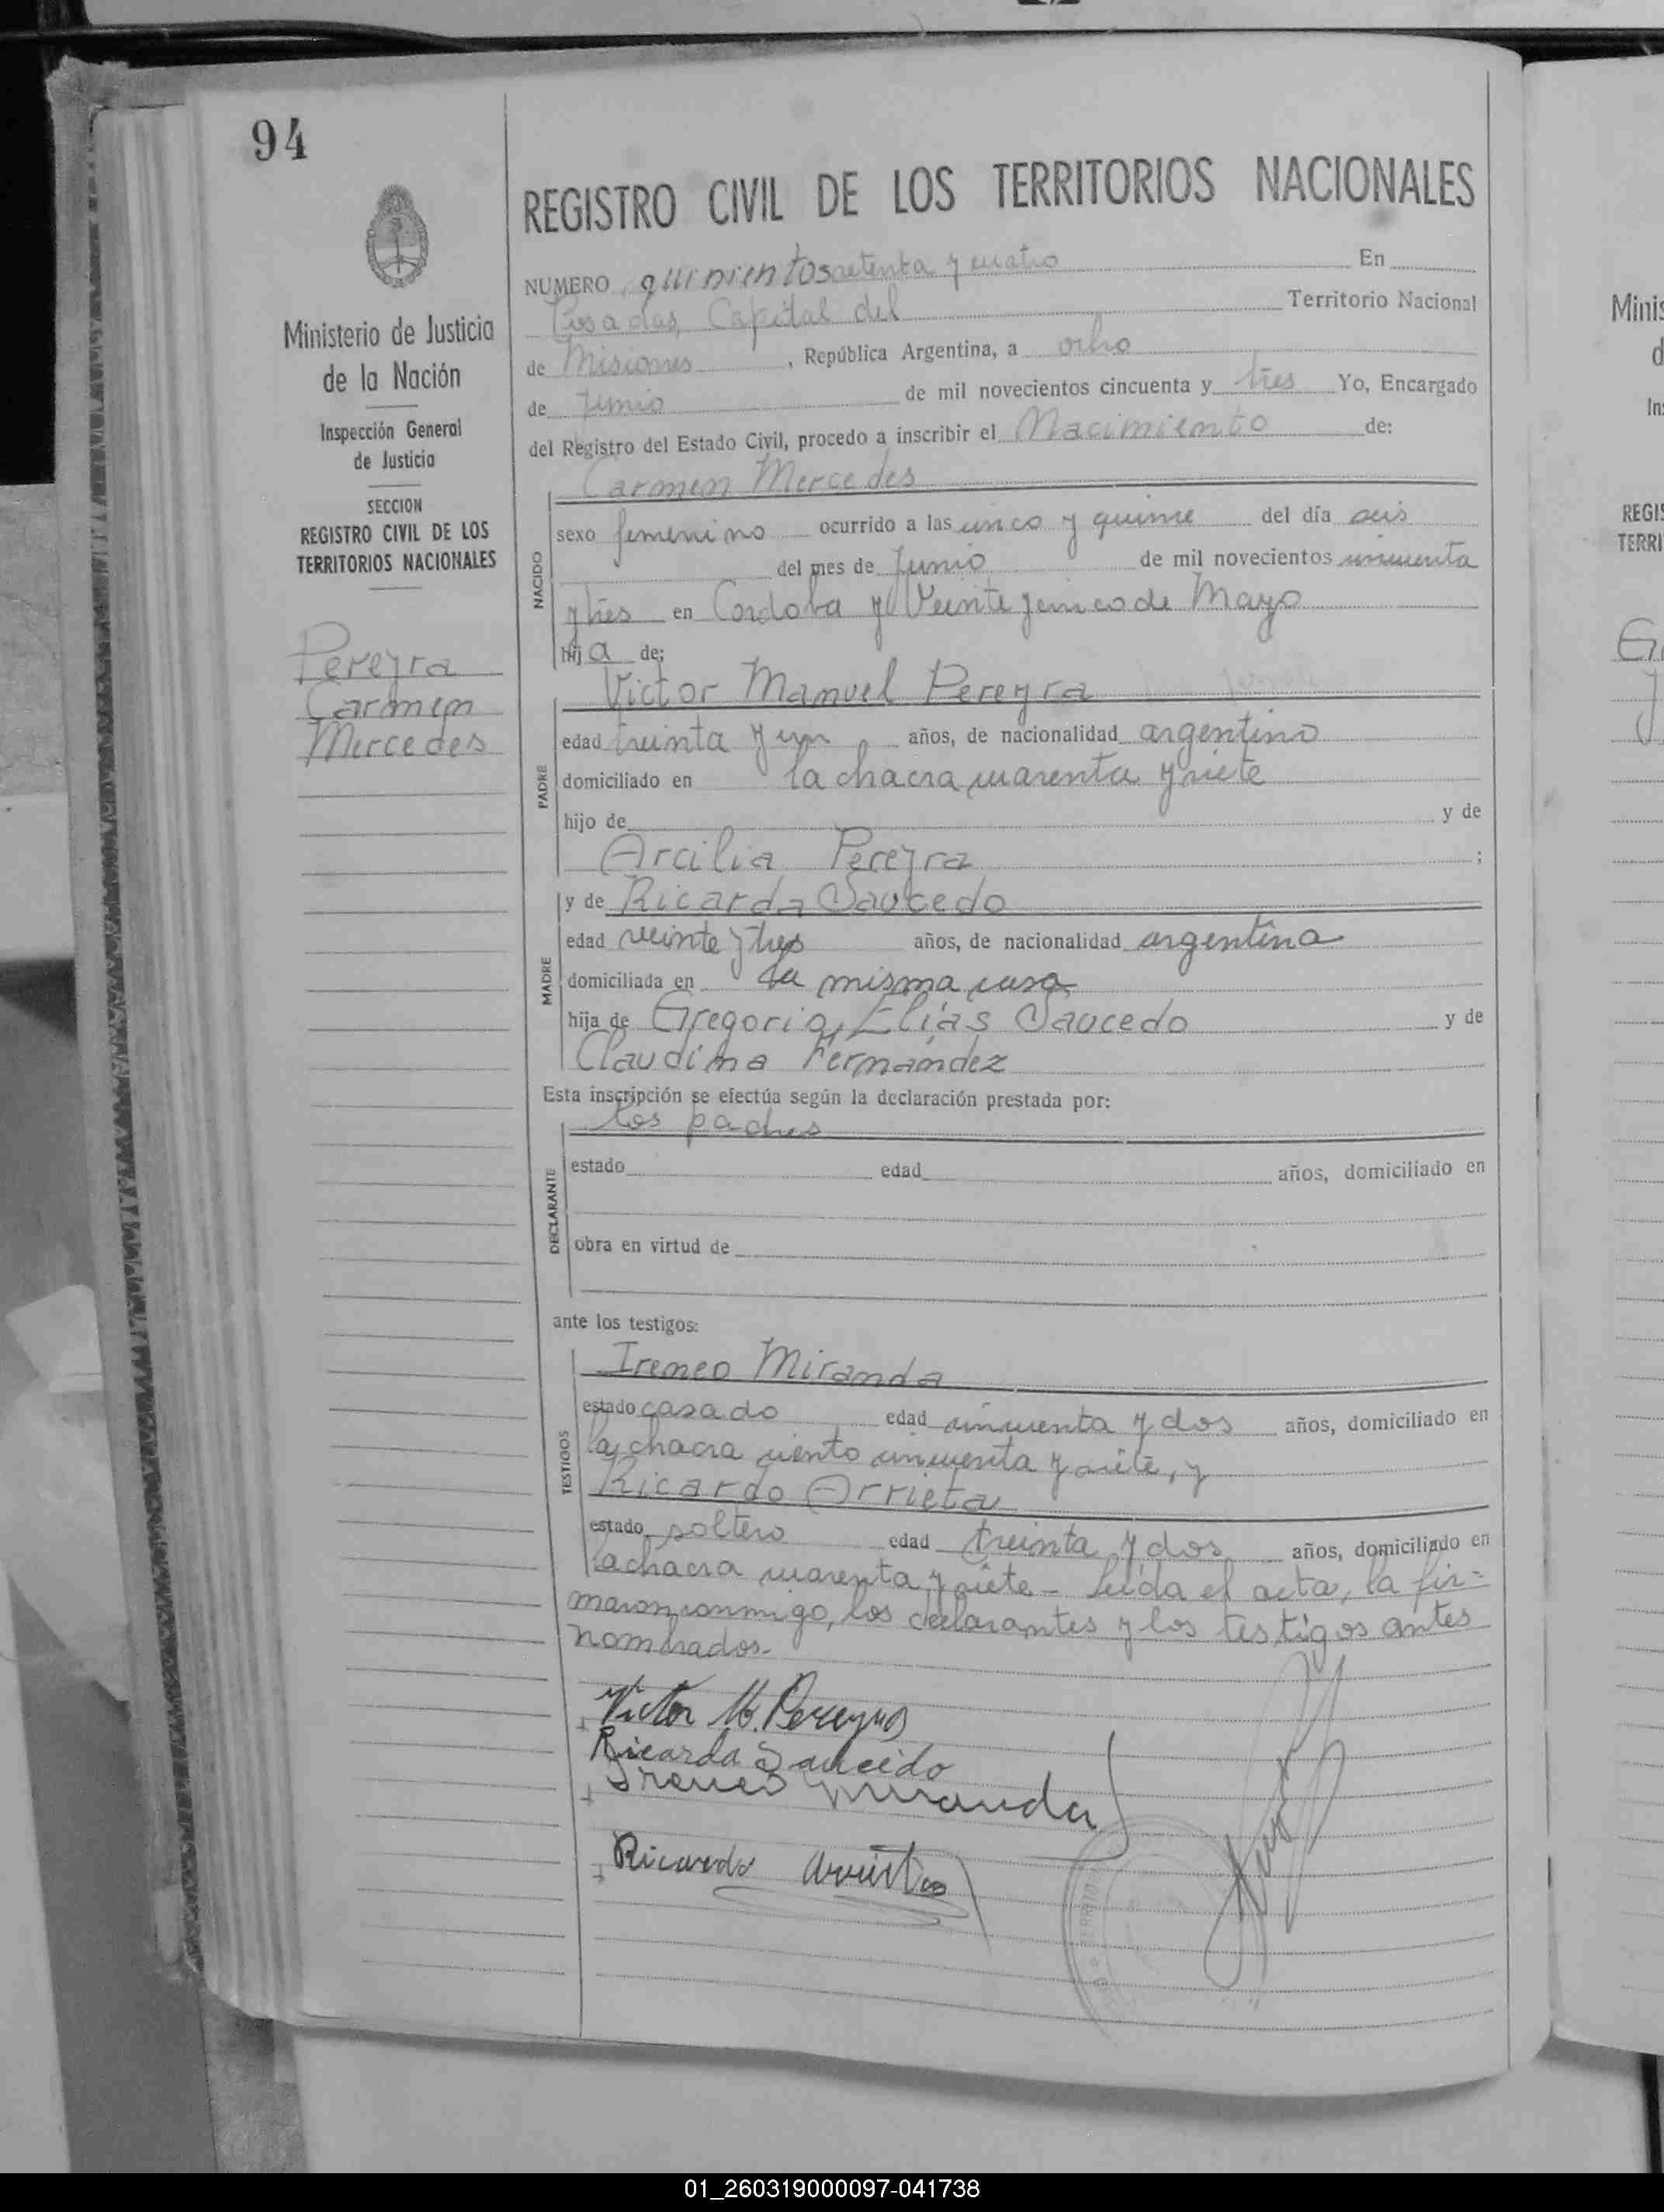 94
Ministerio de Justicia
de la Nación
Inspección General
de Justicia
SECCION
REGISTRO CIVIL DE LOS
TERRITORIOS NACIONALES
Pereyra
Carmen
Mercedes
REGISTRO CIVIL DE LOS TERRITORIOS NACIONALES
NUMERO quinientos setenta y cuatro En
Posadas, Capital del Territorio Nacional
de Misiones, República Argentina, a ocho
de Junio de mil novecientos cincuenta y tres Yo, Encargado
del Registro del Estado Civil, procedo a inscribir el Nacimiento de:
Carmen Mercedes
NACIDO
sexo femenino ocurrido a las cinco y quince del día seis
del mes de Junio de mil novecientos cincuenta
y tres en Cordoba y Veinte y cinco de Mayo
hija de:
Victor Manuel Pereyra
PADRE
edad treinta y un años, de nacionalidad argentino
domiciliado en la chacra cuarenta y siete
hijo de y de
Arcilia Pereyra ;
MADRE
y de Ricarda Saucedo
edad veinte y tres años, de nacionalidad argentina
domiciliada en la misma casa
hija de Gregorio Elías Saucedo y de
Claudina Fernández
Esta inscripción se efectúa según la declaración prestada por:
los padres
DECLARANTE
estado edad años, domiciliado en
obra en virtud de
ante los testigos:
TESTIGOS
Ireneo Miranda
estado casado edad cincuenta y dos años, domiciliado en
la chacra ciento cincuenta y siete, y
Ricardo Arrieta
estado soltero edad treinta y dos años, domiciliado en
la chacra cuarenta y siete - Leída el acta, la fir=
maron conmigo, los declarantes y los testigos antes
nombrados.-
Victor M. Pereyra
Ricarda Saucedo
Ireneo Miranda
Ricardo Arrieta
Minis
d
In:
REGIS
TERRI
01_260319000097-041738